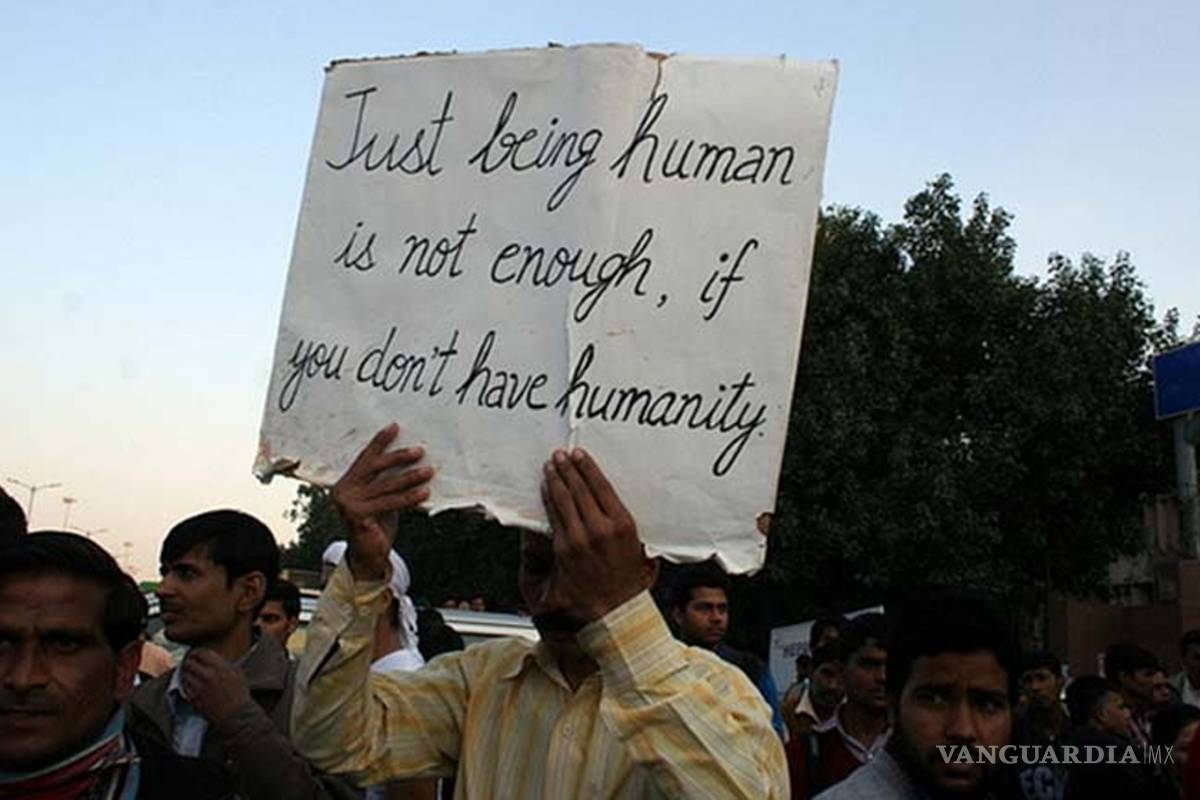 Just being human
is not enough, if
you don't have humanity.
VANGUARDIA|MX